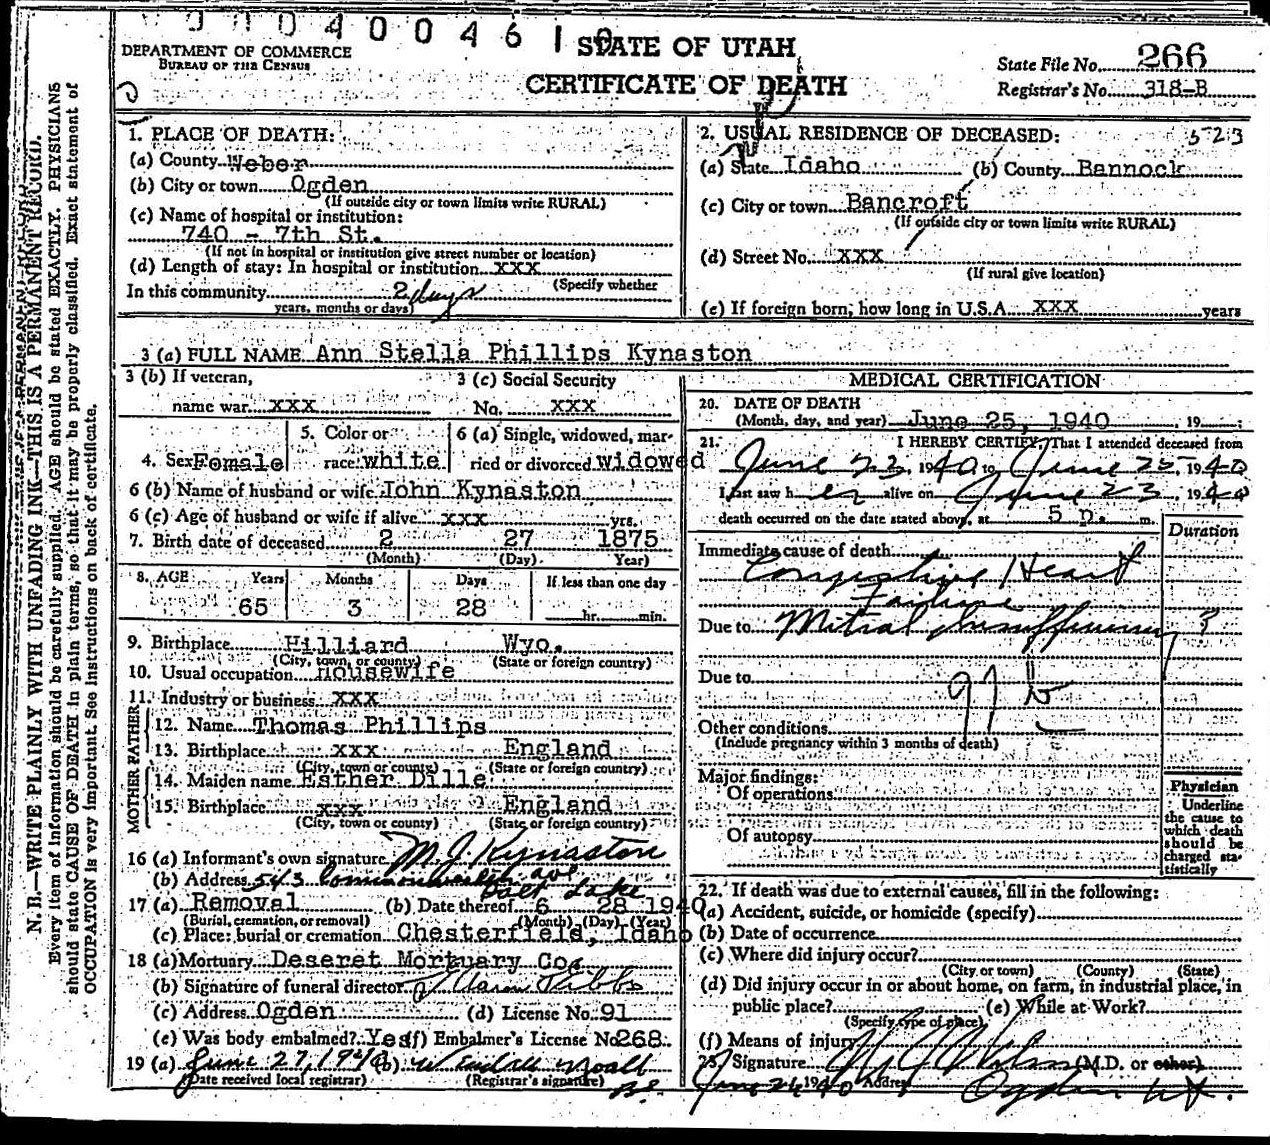 0004004610
STATE OF UTAH
CERTIFICATE OF DEATH
DEPARTMENT OF COMMERCE
BUREAU OF THE CENSUS
State File No. 266
Registrar's No. 318-B
N. B.—WRITE PLAINLY WITH UNFADING INK—THIS IS A PERMANENT RECORD.
Every item of information should be carefully supplied. AGE should be stated EXACTLY. PHYSICIANS
should state CAUSE OF DEATH in plain terms, so that it may be properly classified. Exact statement of
OCCUPATION is very important. See instructions on back of certificate.
1. PLACE OF DEATH:
(a) County Weber
(b) City or town Ogden
(If outside city or town limits write RURAL)
(c) Name of hospital or institution:
740 - 7th St.
(If not in hospital or institution give street number or location)
(d) Length of stay: In hospital or institution xxx
(Specify whether
In this community 2 days
years, months or days)
2. USUAL RESIDENCE OF DECEASED: 523
(a) State Idaho (b) County Bannock
(c) City or town Bancroft
(If outside city or town limits write RURAL)
(d) Street No. xxx
(If rural give location)
(e) If foreign born, how long in U.S.A. xxx years
3 (a) FULL NAME Ann Stella Phillips Kynaston
3 (b) If veteran, 3 (c) Social Security
name war xxx No. xxx
4. Sex Female 5. Color or race white 6 (a) Single, widowed, married or divorced widowed
6 (b) Name of husband or wife John Kynaston
6 (c) Age of husband or wife if alive xxx yrs.
7. Birth date of deceased 2 27 1875
(Month) (Day) Year)
8. AGE Years Months Days If less than one day
65 3 28 hr. min.
9. Birthplace Hilliard Wyo.
(City, town, or county) (State or foreign country)
10. Usual occupation housewife
11. Industry or business xxx
FATHER
12. Name Thomas Phillips
13. Birthplace xxx England
(City, town or county) (State or foreign country)
MOTHER
14. Maiden name Esther Dille
15. Birthplace xxx England
(City, town or county) (State or foreign country)
16 (a) Informant's own signature M J Kynaston
(b) Address 543 Commonwealth ave
Salt Lake
17 (a) Removal (b) Date thereof 6 28 1940
(Burial, cremation, or removal) (Month) (Day) (Year)
(c) Place: burial or cremation Chesterfield, Idaho
18 (a) Mortuary Deseret Mortuary Co.
(b) Signature of funeral director
(c) Address Ogden (d) License No. 91
(e) Was body embalmed? Yes (f) Embalmer's License No 268
19 (a) June 27, 1940 (b) Wendell Noall
(Date received local registrar) (Registrar's signature)
MEDICAL CERTIFICATION
20. DATE OF DEATH
(Month, day, and year) June 25, 1940, 19
21. I HEREBY CERTIFY, That I attended deceased from
June 23, 1940 to June 25, 1940
I last saw her alive on June 23, 1940
death occurred on the date stated above, at 5 p. m.
Duration
Immediate cause of death
Congestive Heart
Failure
Due to Mitral Insufficiency ?
Due to
Other conditions
(Include pregnancy within 3 months of death)
Major findings:
Of operations
Of autopsy
Physician
Underline
the cause to
which death
should be
charged sta-
tistically
22. If death was due to external causes, fill in the following:
(a) Accident, suicide, or homicide (specify)
(b) Date of occurrence
(c) Where did injury occur?
(City or town) (County) (State)
(d) Did injury occur in or about home, on farm, in industrial place, in
public place? (e) While at Work?
(Specify type of place)
(f) Means of injury
23. Signature (M.D. or other)
June 26 1940 Address Ogden Ut.